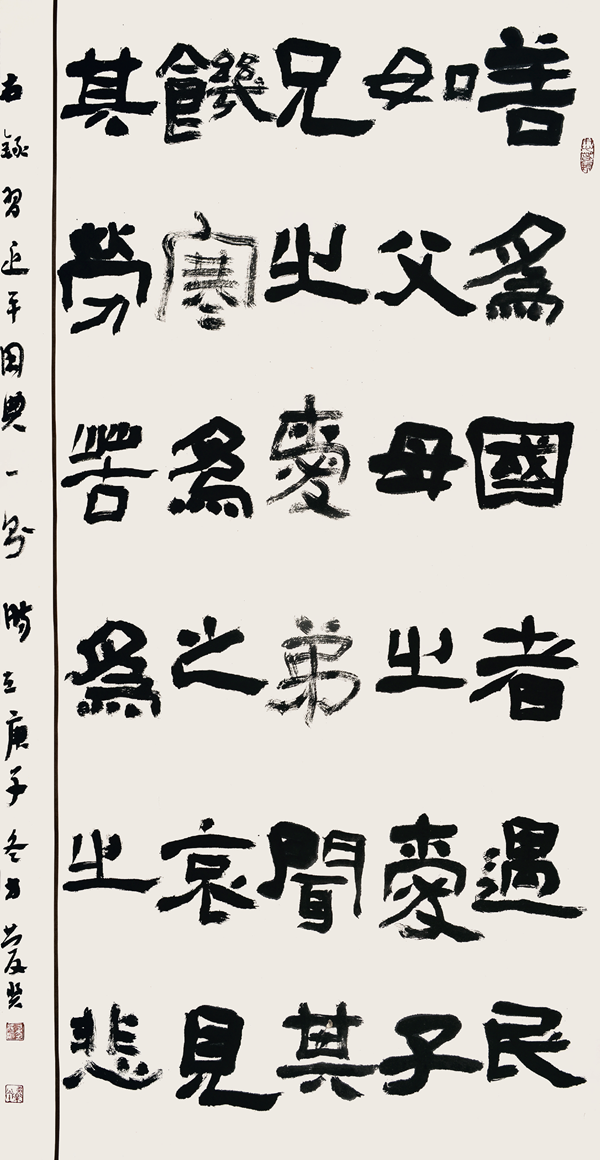 善爲國者遇民
如父母之愛子
兄之愛弟聞其
饑寒爲之哀見
其勞苦爲之悲
右錄習近平用典一則時在庚子冬月